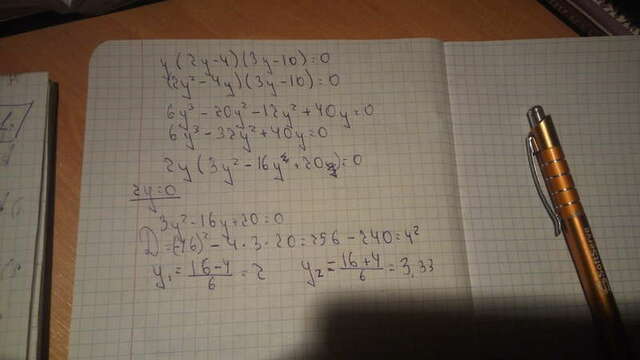 y(2y-4)(3y-10)=0
(2y²-4y)(3y-10)=0
6y³-20y²-12y²+40y=0
6y³-32y²+40y=0
2y(3y²-16y+20)=0
2y=0
3y²-16y+20=0
D=(-16)²-4·3·20=256-240=4²
y₁=(16-4)/6=2 y₂=(16+4)/6=3,33